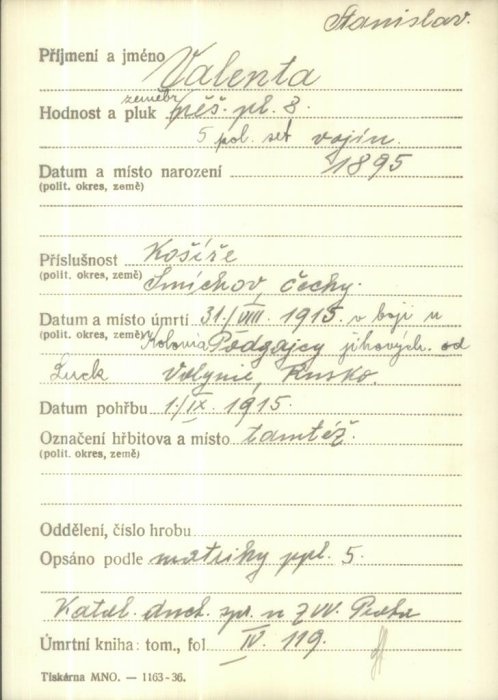 Stanislav.
Příjmení a jméno Valenta
zeměbr.
Hodnost a pluk pěš. pl. 8.
5 pol. set vojín.
Datum a místo narození 1895
(polit. okres, země)
Příslušnost Košíře
(polit. okres, země) Smíchov, Čechy.
Datum a místo úmrtí 31./VIII. 1915. v boji u
(polit. okres, země) Kolonia Podgajcy jihových. od
Luck Volynie, Rusko.
Datum pohřbu 1./IX. 1915.
Označení hřbitova a místo tamtéž.
(polit. okres, země)
Oddělení, číslo hrobu
Opsáno podle matriky ppl. 5.
Katol. duch. spr. u ZVV. Praha
Úmrtní kniha: tom., fol. IV. 119.
Tiskárna MNO. — 1163-36.